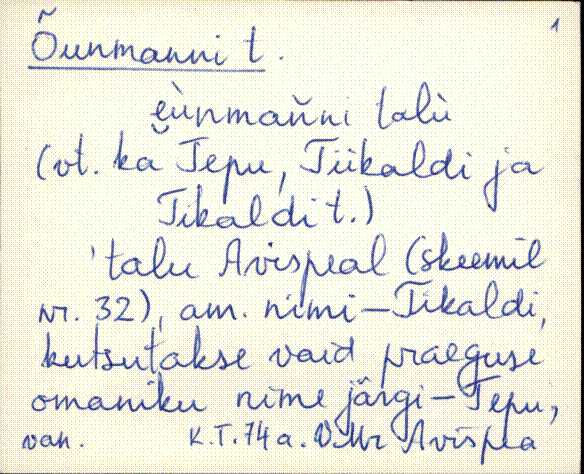 1
Õunmanni t.
e̮ùnmaǹni talù
(vt. ka Tepu, Tiikaldi ja
Tikaldi t.)
'talu Avispeal (skeemil
nr. 32), am. nimi – Tikaldi,
kutsutakse vaid praeguse
omaniku nime järgi – Tepu,
van. K.T. 74 a. V.Mr Avispea